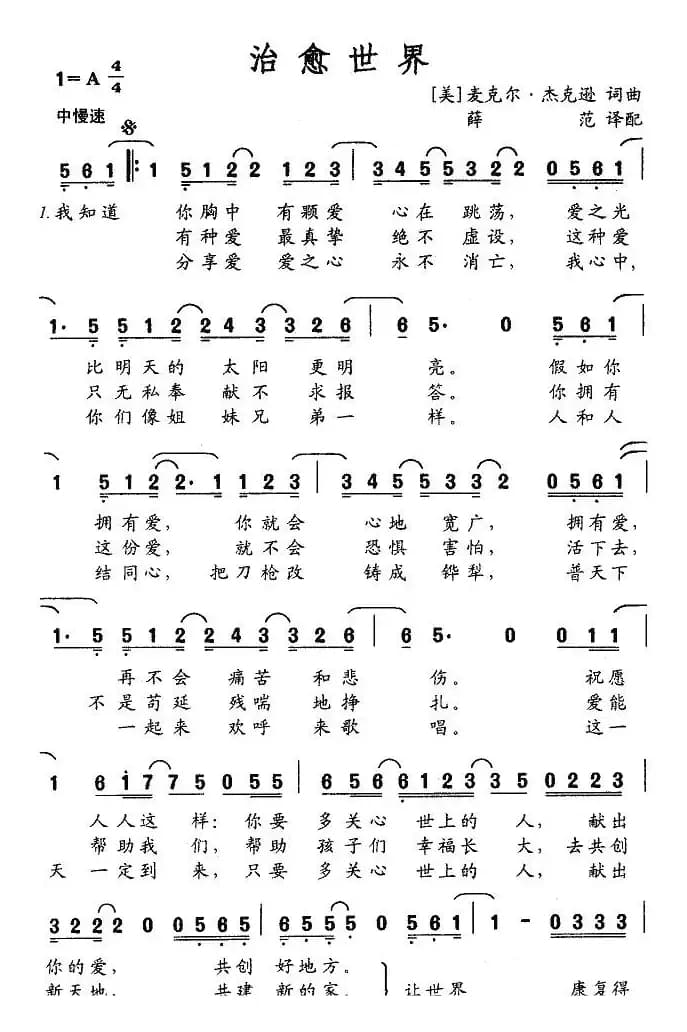 治愈世界
1=A 4/4
[美]麦克尔·杰克逊 词曲
中慢速
薛 范 译配
5 6 1 1 5 1 2 2 1 2 3 3 4 5 5 3 2 2 0 5 6 1
1.我知道 你胸中 有颗爱 心在 跳荡, 爱之光
有种爱 最真挚 绝不 虚设, 这种爱
分享爱 爱之心 永不 消亡, 我心中,
1· 5 5 1 2 2 4 3 3 2 6 6 5· 0 5 6 1
比明天的 太阳 更明 亮。 假如你
只无私奉 献不 求报 答。 你拥有
你们像姐 妹兄 弟一 样。 人和人
1 5 1 2 2· 1 1 2 3 3 4 5 5 3 3 2 0 5 6 1
拥有爱, 你就会 心地 宽广, 拥有爱,
这份爱, 就不会 恐惧 害怕, 活下去,
结同心, 把刀枪改 铸成 铧犁, 普天下
1· 5 5 1 2 2 4 3 3 2 6 6 5· 0 0 1 1
再不会 痛苦 和悲 伤。 祝愿
不是苟延 残喘 地挣 扎。 爱能
一起来 欢呼 来歌 唱。 这一
1 6 1 7 7 5 0 5 5 6 5 6 6 1 2 3 3 2 0 2 2 3
人人这 样: 你要 多关心 世上的 人, 献出
帮助我 们, 帮助 孩子们 幸福长 大, 去共创
天 一定到 来, 只要 多关心 世上的 人, 献出
3 2 2 2 0 0 5 6 5 6 5 5 5 0 5 6 1 1 - 0 3 3 3
你的爱, 共创 好地方。
新天地, 共建 新的家, 让世界 康复得